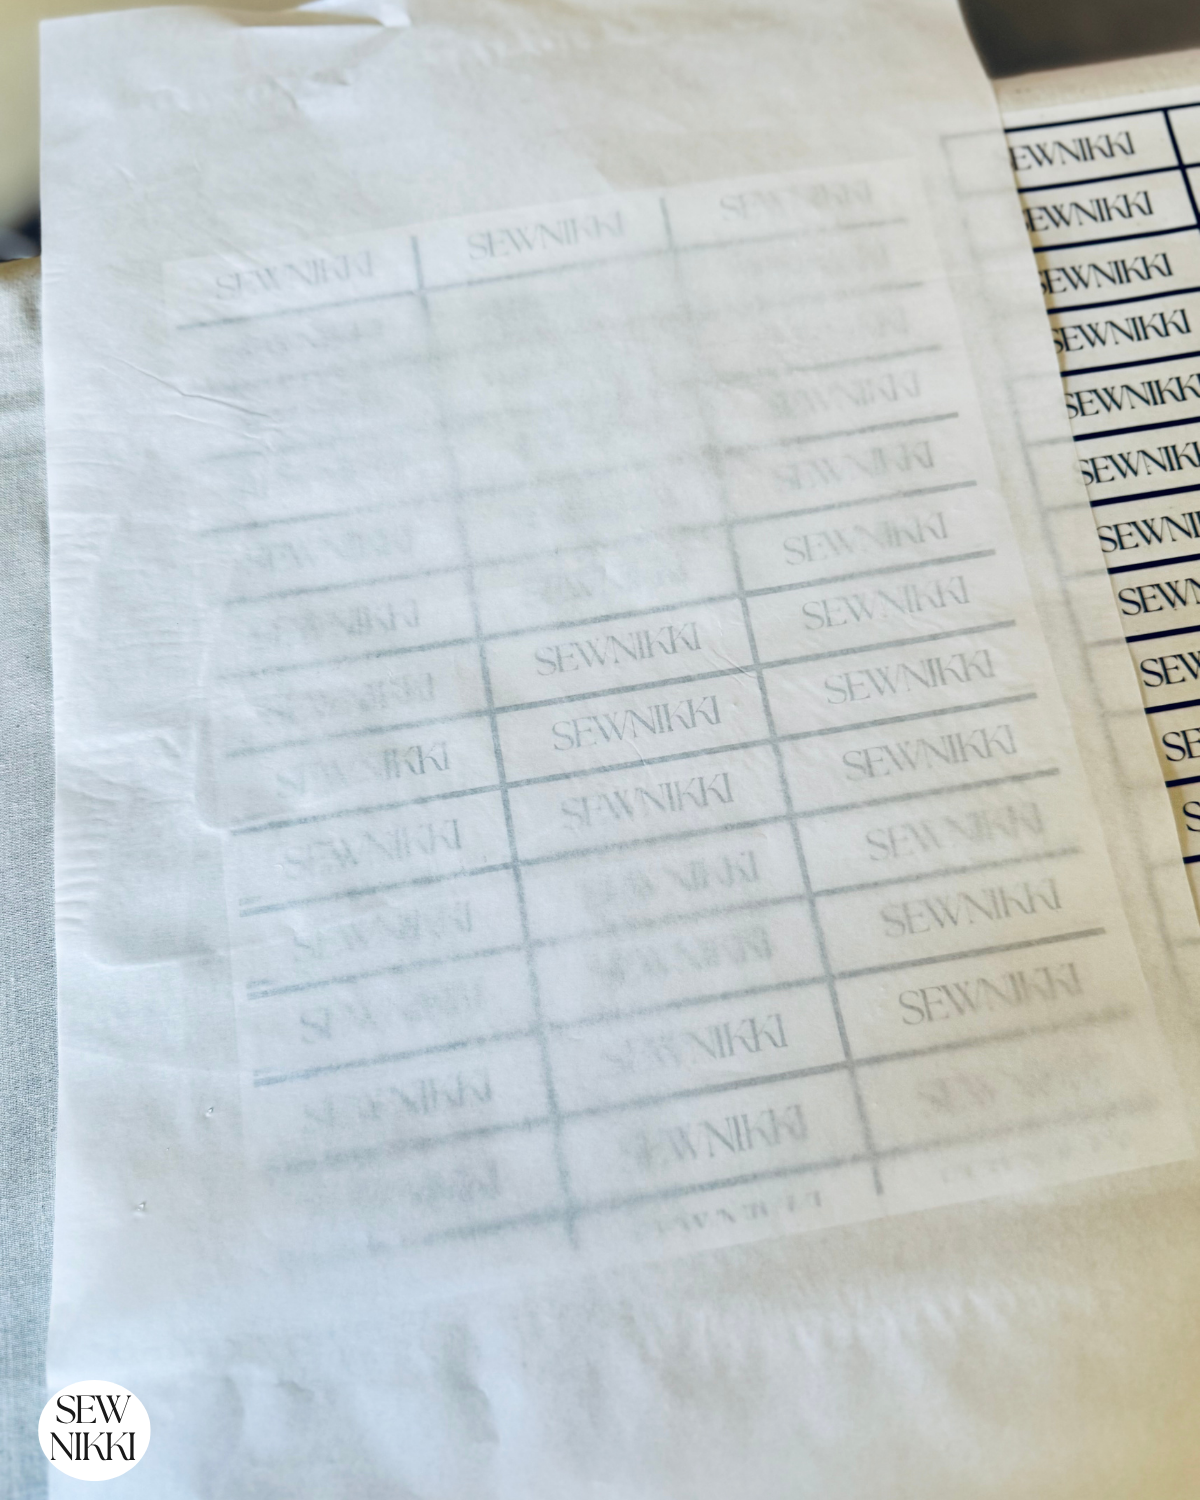 SEWNIKKI SEWNIKKI SEWNIKKI
SEWNIKKI
SEWNIKKI
SEWNIKKI
SEWNIKKI SEWNIKKI
SEWNIKKI SEWNIKKI SEWNIKKI
SEWNIKKI SEWNIKKI SEWNIKKI
SEWNIKKI SEWNIKKI SEWNIKKI
SEWNIKKI SEWNIKKI
SEWNIKKI SEWNIKKI SEWNIKKI
SEWNIKKI
EWNIKKI
EWNIKKI
SEWNIKKI
SEWNIKKI
SEWNIKKI
SEWNIK
SEWNI
SEWN
SEW
SE
S
SEW
NIKKI